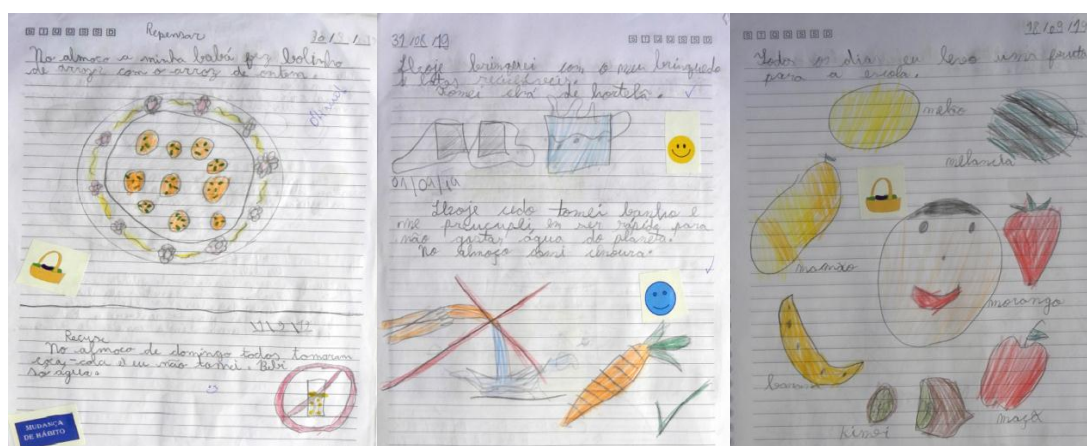 Repensar
No almoço a minha babá fez bolinho
de arroz com o arroz de ontem.
Recuse
No almoco de domingo todos tomaram
coca-cola e eu não tomei. Bebi
só água.
MUDANÇA
DE HÁBITO
31/08/19
Hoje brinquei com o meu brinquedo
e latas recicláveis.
Tomei chá de hortelã.
01/09/19
Hoje cedo tomei banho e
me preucupei em ser rápido para
não gastar água do planeta.
No almoço comi cenoura.
18/09/19
Todos os dias eu levo uma fruta
para a escola.
melão
melancia
mamão
morango
banana
kiwi
maçã